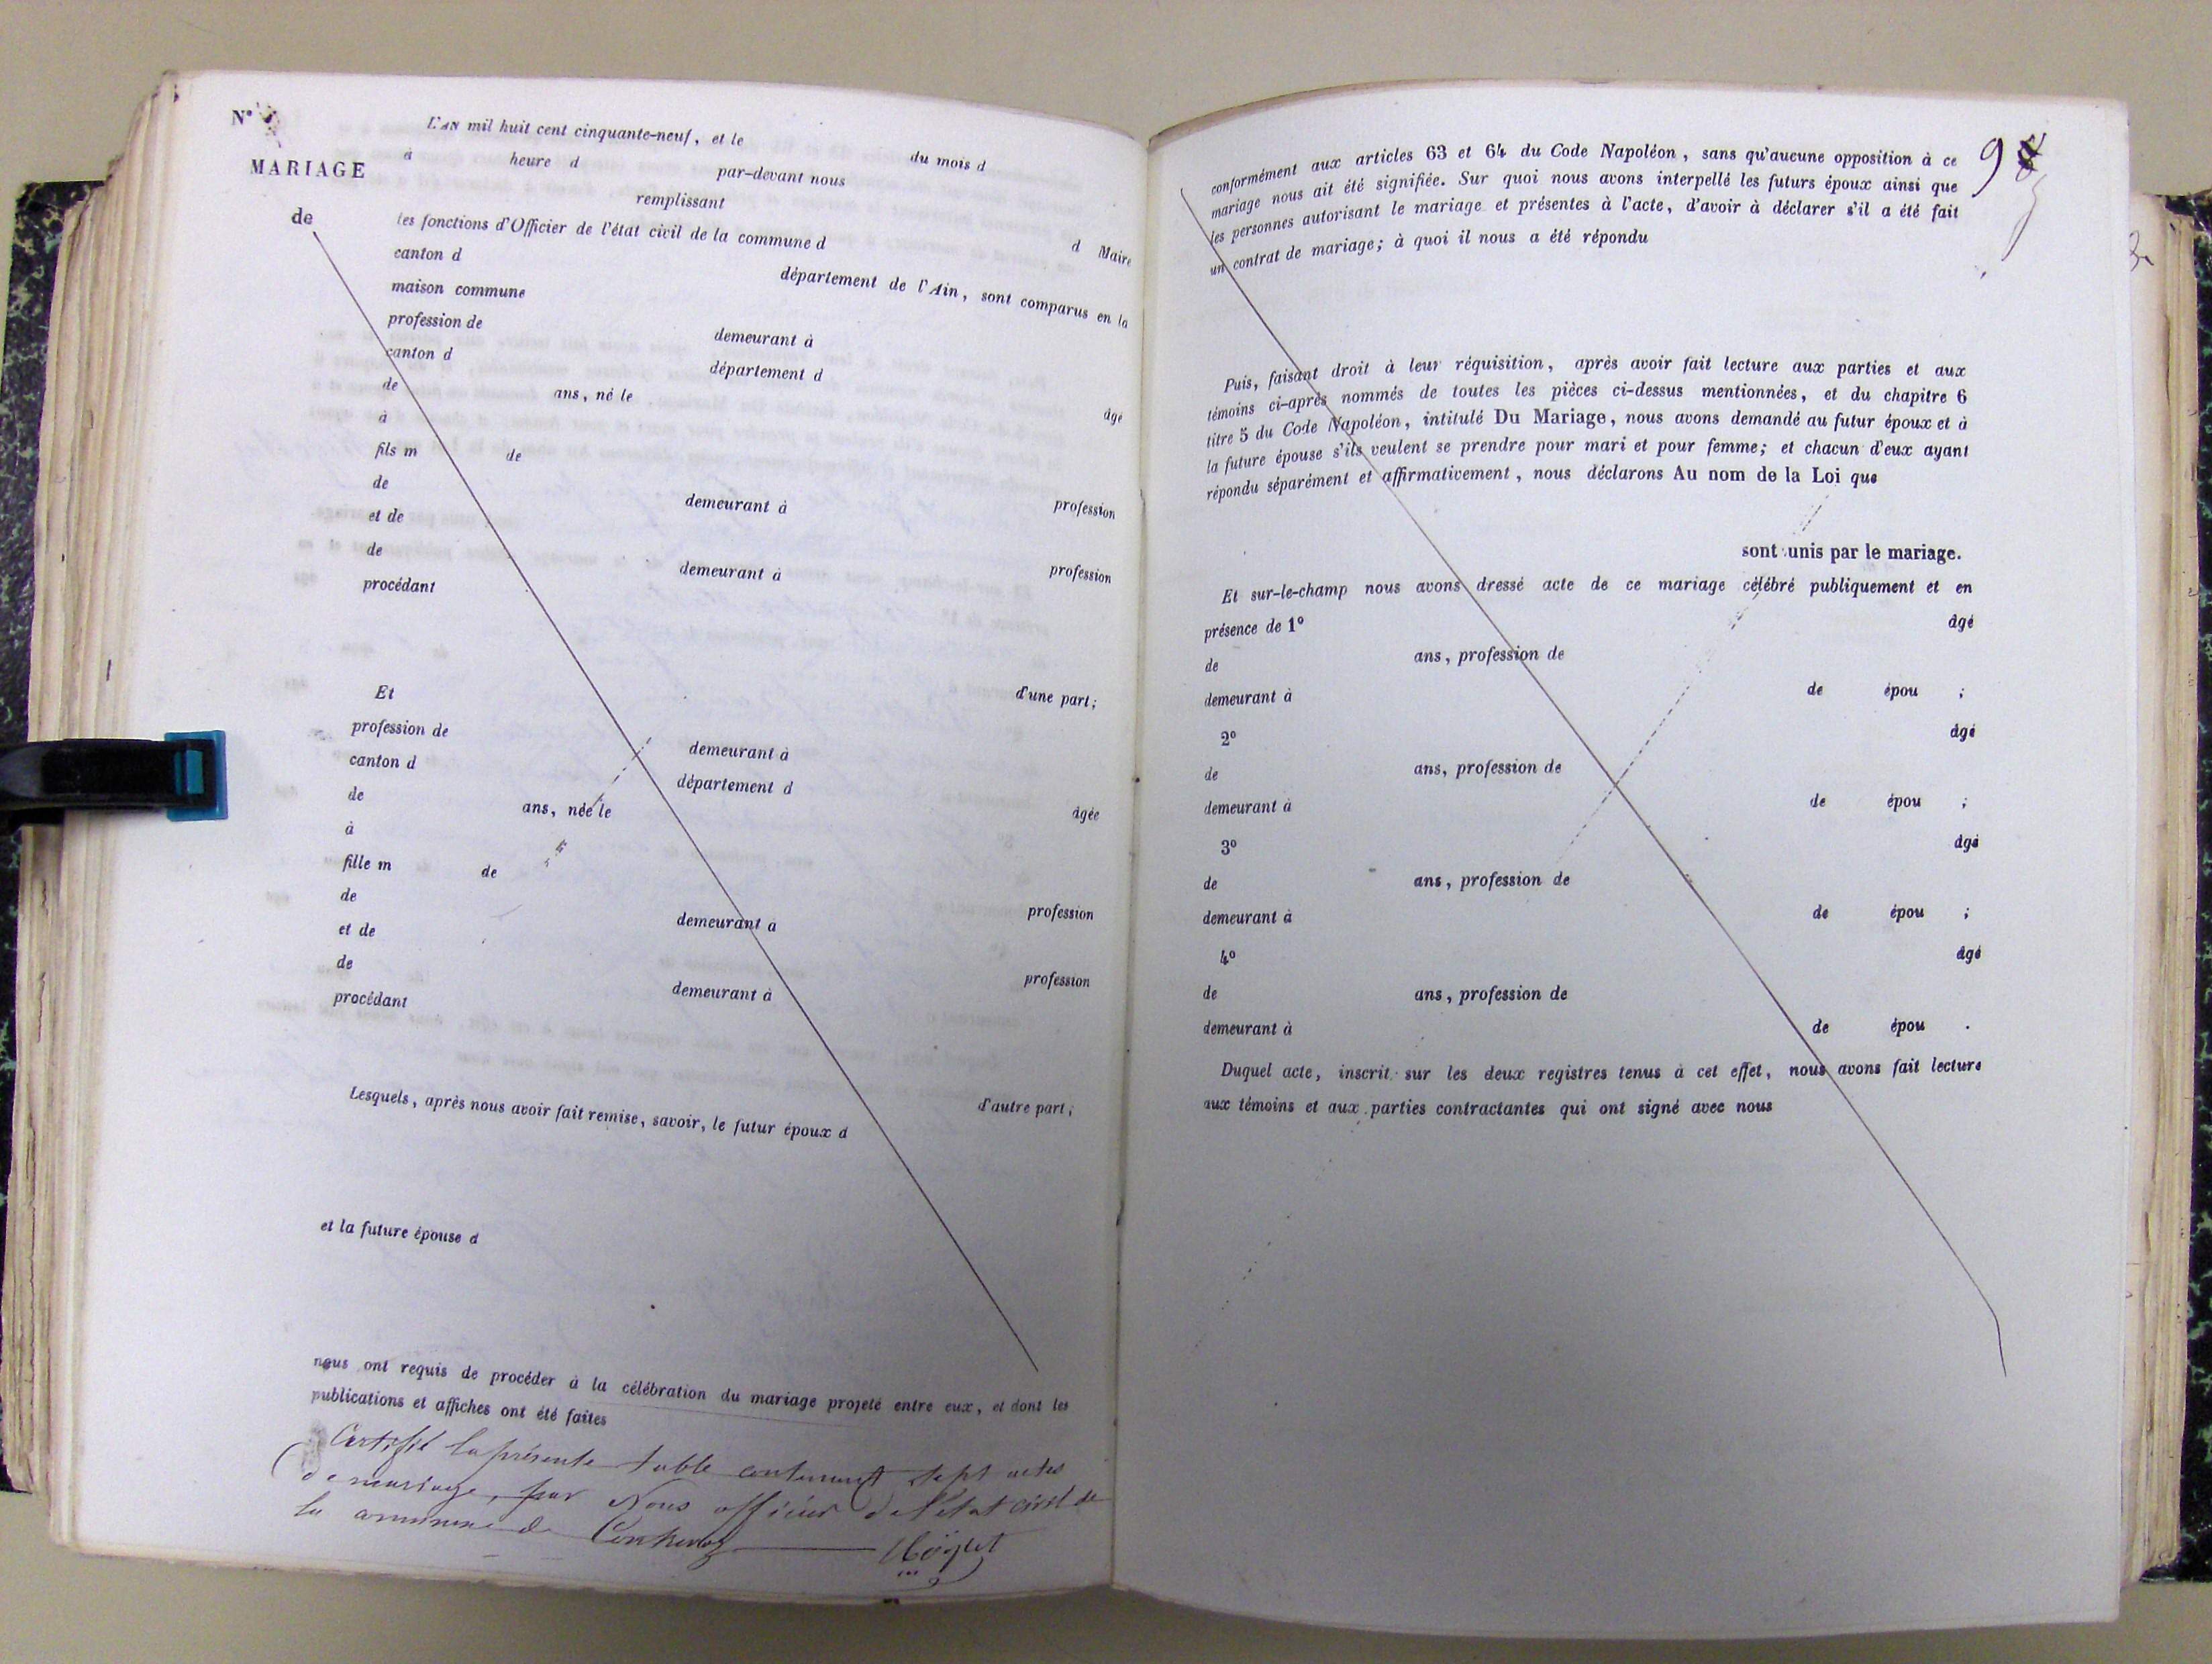 N°
MARIAGE
de
L'AN mil huit cent cinquante-neuf, et le du mois d
à heure d par-devant nous
remplissant d Maire
les fonctions d'Officier de l'état civil de la commune d
canton d département de l'Ain, sont comparus en la
maison commune
profession de demeurant à
canton d département d
de ans, né le âgé
à
fils m de
de demeurant à profession
et de
de demeurant à profession
procédant
d'une part;
Et
profession de demeurant à
canton d département d
de ans, née le âgée
à
fille m de
de demeurant à profession
et de
de demeurant à profession
procédant
d'autre part;
Lesquels, après nous avoir fait remise, savoir, le futur époux d
et la future épouse d
nous ont requis de procéder à la célébration du mariage projeté entre eux, et dont les
publications et affiches ont été faites
Certifié la présente table contenant sept actes
de mariage, par Nous officier de l'état civil de
la commune de
9
conformément aux articles 63 et 64 du Code Napoléon, sans qu'aucune opposition à ce
mariage nous ait été signifiée. Sur quoi nous avons interpellé les futurs époux ainsi que
les personnes autorisant le mariage et présentes à l'acte, d'avoir à déclarer s'il a été fait
un contrat de mariage; à quoi il nous a été répondu
Puis, faisant droit à leur réquisition, après avoir fait lecture aux parties et aux
témoins ci-après nommés de toutes les pièces ci-dessus mentionnées, et du chapitre 6
titre 5 du Code Napoléon, intitulé Du Mariage, nous avons demandé au futur époux et à
la future épouse s'ils veulent se prendre pour mari et pour femme; et chacun d'eux ayant
répondu séparément et affirmativement, nous déclarons Au nom de la Loi que
sont unis par le mariage.
Et sur-le-champ nous avons dressé acte de ce mariage célébré publiquement et en
présence de 1° âgé
de ans, profession de
demeurant à de épou ;
2° âgé
de ans, profession de
demeurant à de épou ;
3° âgé
de ans, profession de
demeurant à de épou ;
4° âgé
de ans, profession de
demeurant à de épou .
Duquel acte, inscrit sur les deux registres tenus à cet effet, nous avons fait lecture
aux témoins et aux parties contractantes qui ont signé avec nous